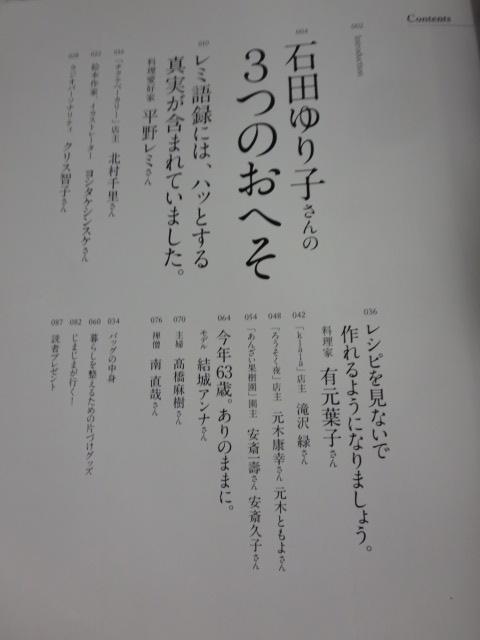 Contents
002
Introduction
004
石田ゆり子さんの
3つのおへそ
010
レミ語録には、ハッとする
真実が含まれていました。
料理愛好家 平野レミさん
016
「チクテベーカリー」店主 北村千里さん
022
絵本作家、イラストレーター ヨシタケシンスケさん
028
ラジオパーソナリティ クリス智子さん
036
レシピを見ないで
作れるようになりましょう。
料理家 有元葉子さん
042
「kiaria」店主 滝沢 緑さん
048
「ろうそく夜」店主 元木康幸さん 元木ともよさん
054
「あんざい果樹園」園主 安斎一壽さん 安斎久子さん
064
今年63歳。ありのままに。
モデル 結城アンナさん
070
主婦 髙橋麻樹さん
076
禅僧 南 直哉さん
034
バッグの中身
060
暮らしを整えるための片づけグッズ
082
じまじまが行く!
087
読者プレゼント